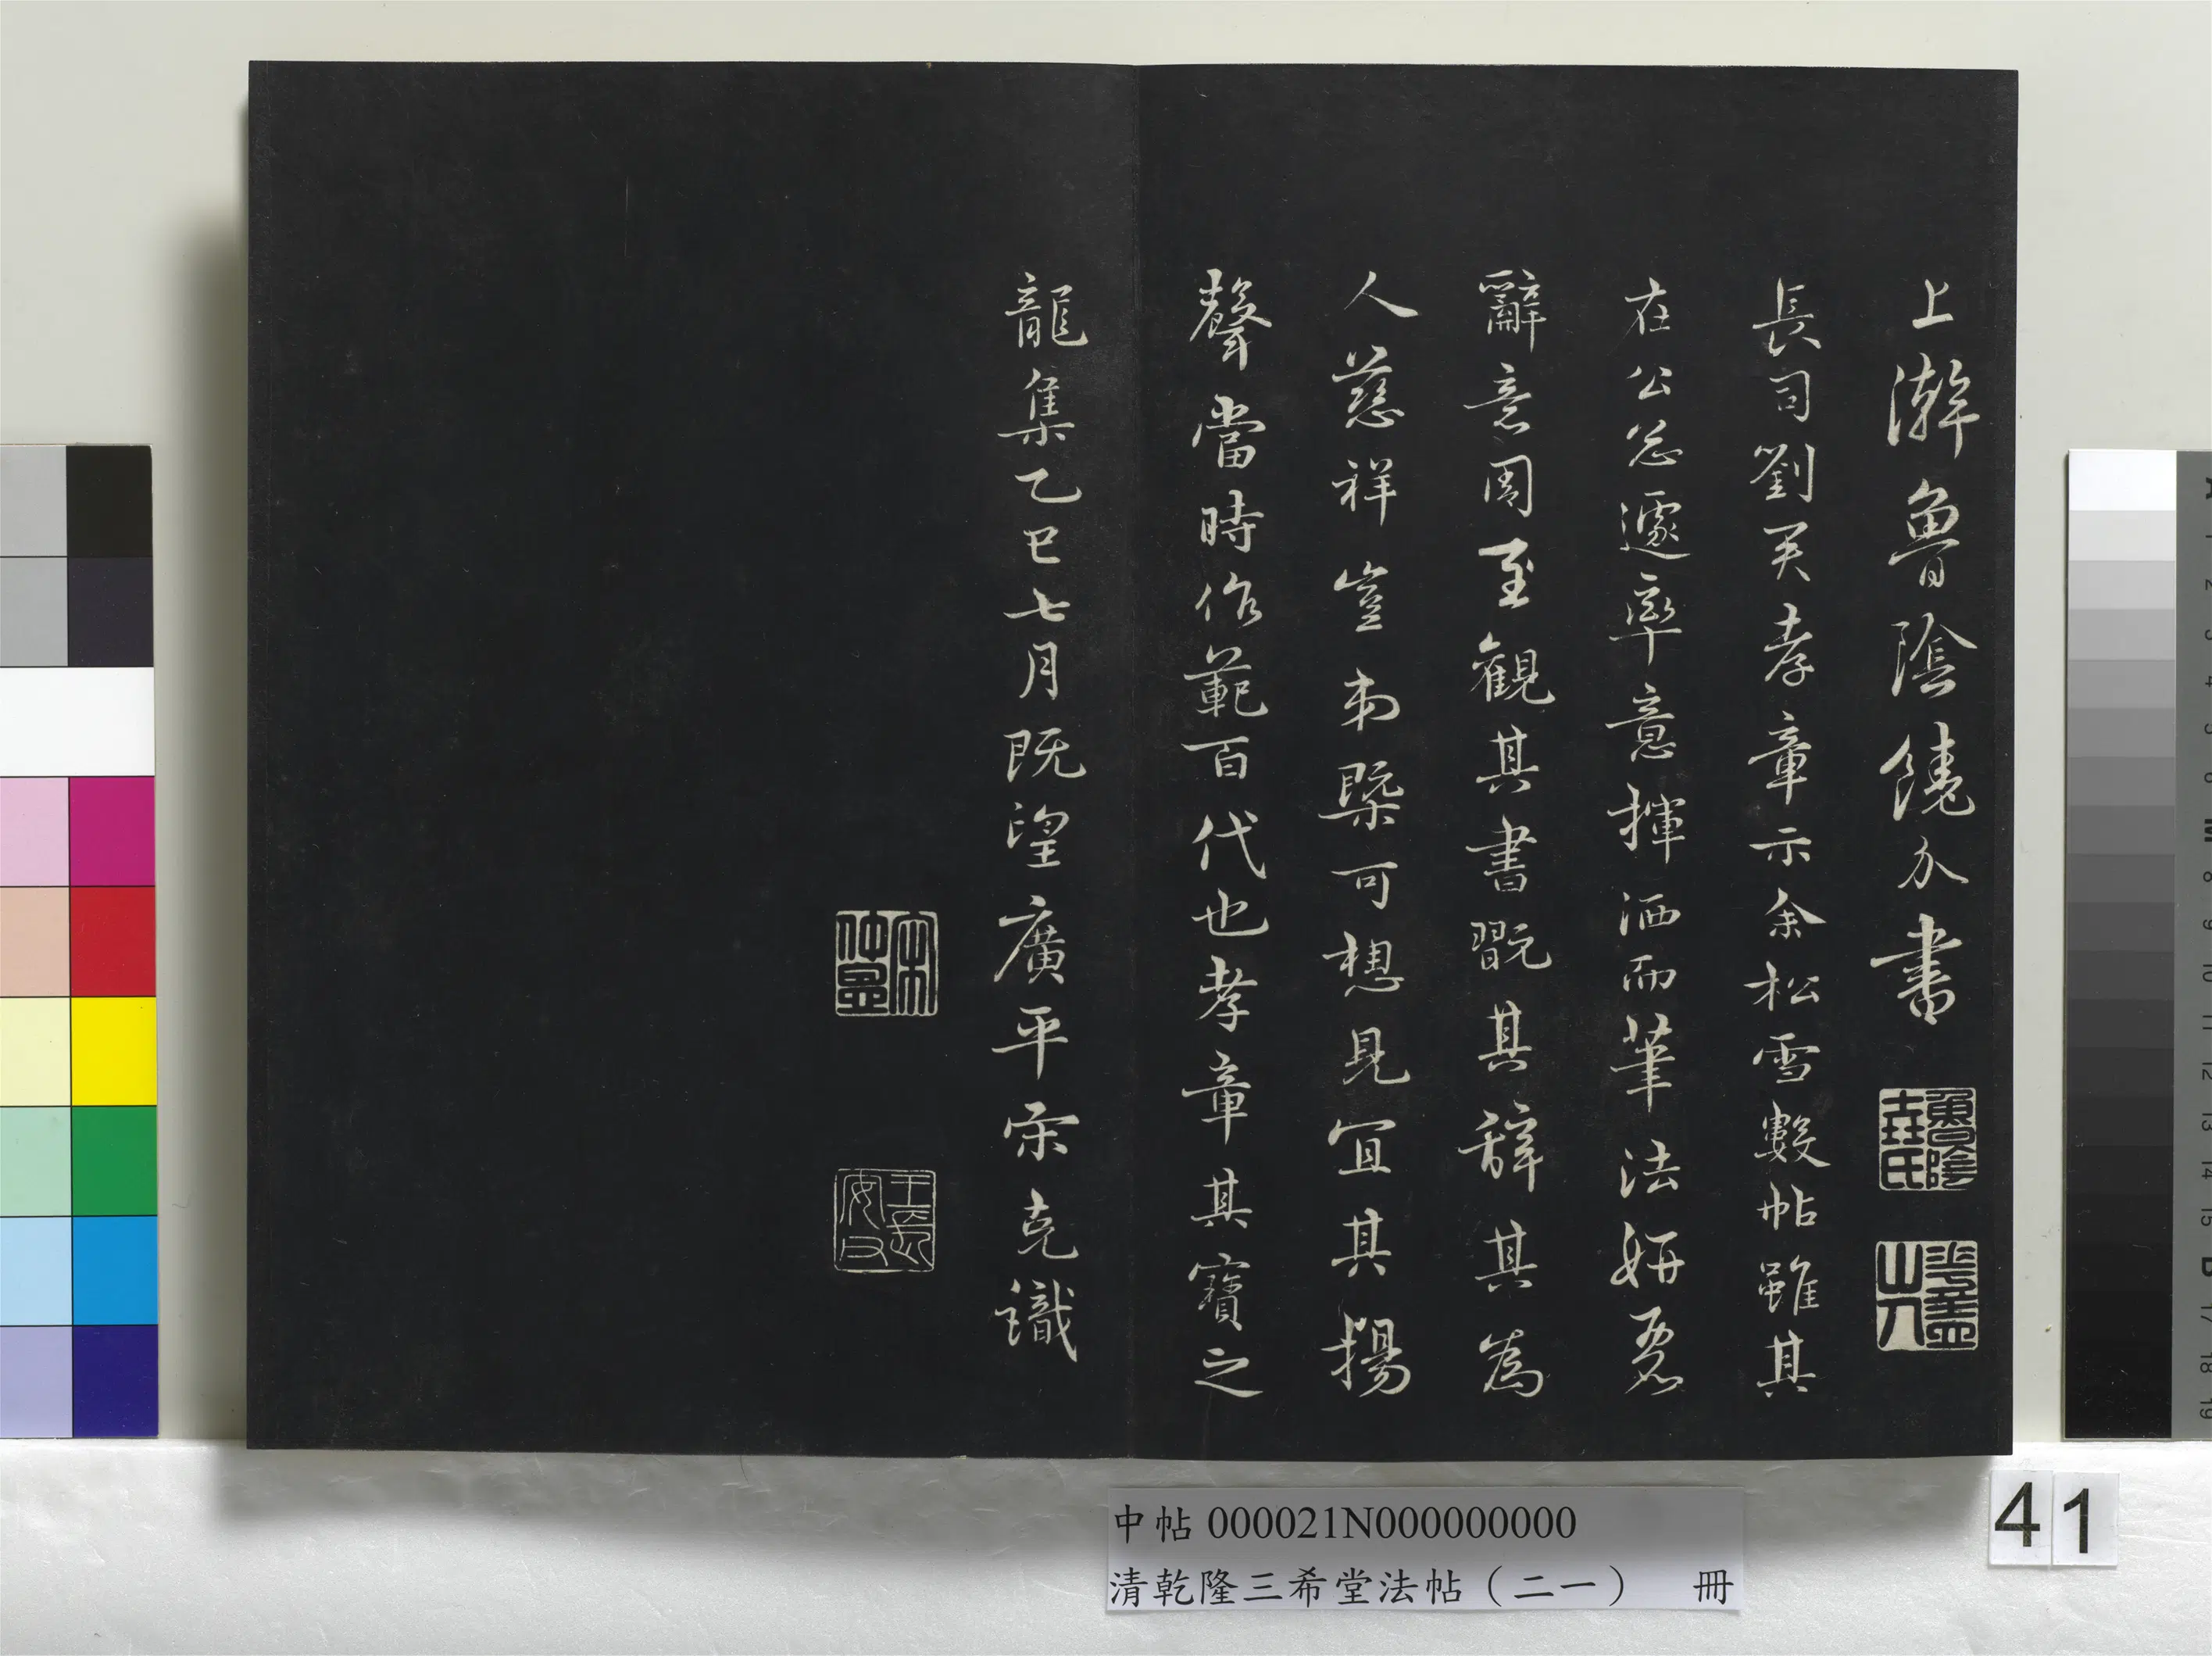 上澣魯陰饒介書
長司劉君孝章示余松雪數帖雖其
在公怱遽率意揮洒而筆法妍麗
辭意周至觀其書翫其辭其為
人慈祥豈弟槩可想見宜其揚
聲當時作範百代也孝章其寶之
龍集乙巳七月既望廣平宋克識
魯陰
宋
中帖 000021N000000000
清乾隆三希堂法帖（二一） 冊
41